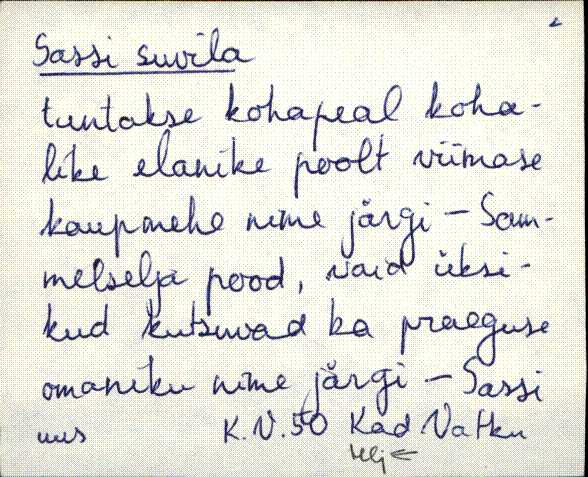 Sassi suvila
tuntakse kohapeal koha-
like elanike poolt viimase
kaupmehe nime järgi - Sam-
melselja pood, vaid üksi-
kud kutsuvad ka praeguse
omaniku nime järgi - Sassi
uus K.V.50 Kad Vatku